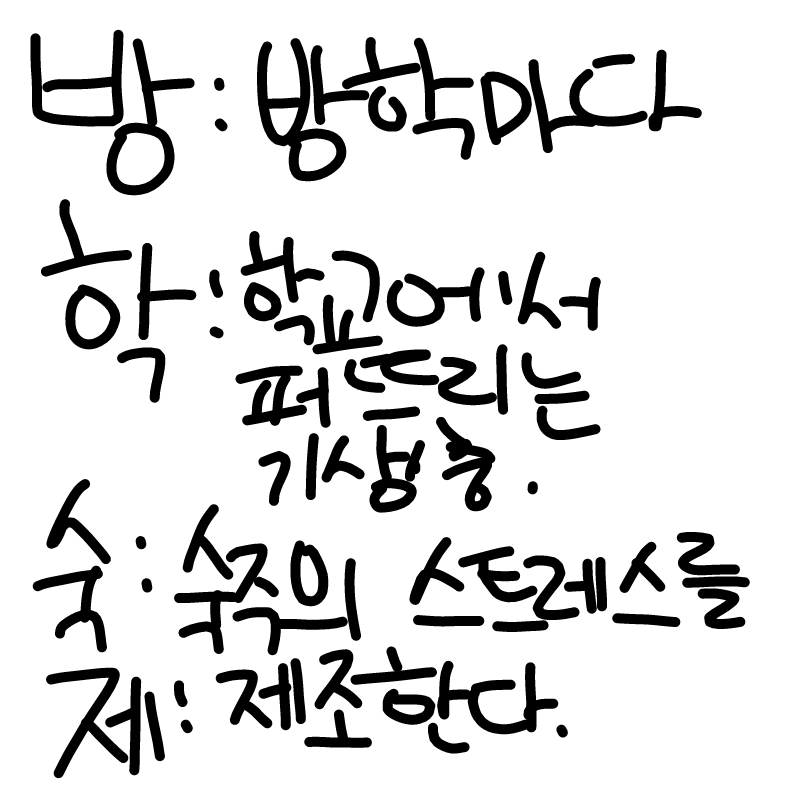 방 : 방학마다
학 : 학교에서
퍼뜨리는
기생충.
숙 : 숙주의 스트레스를
제 : 제조한다.